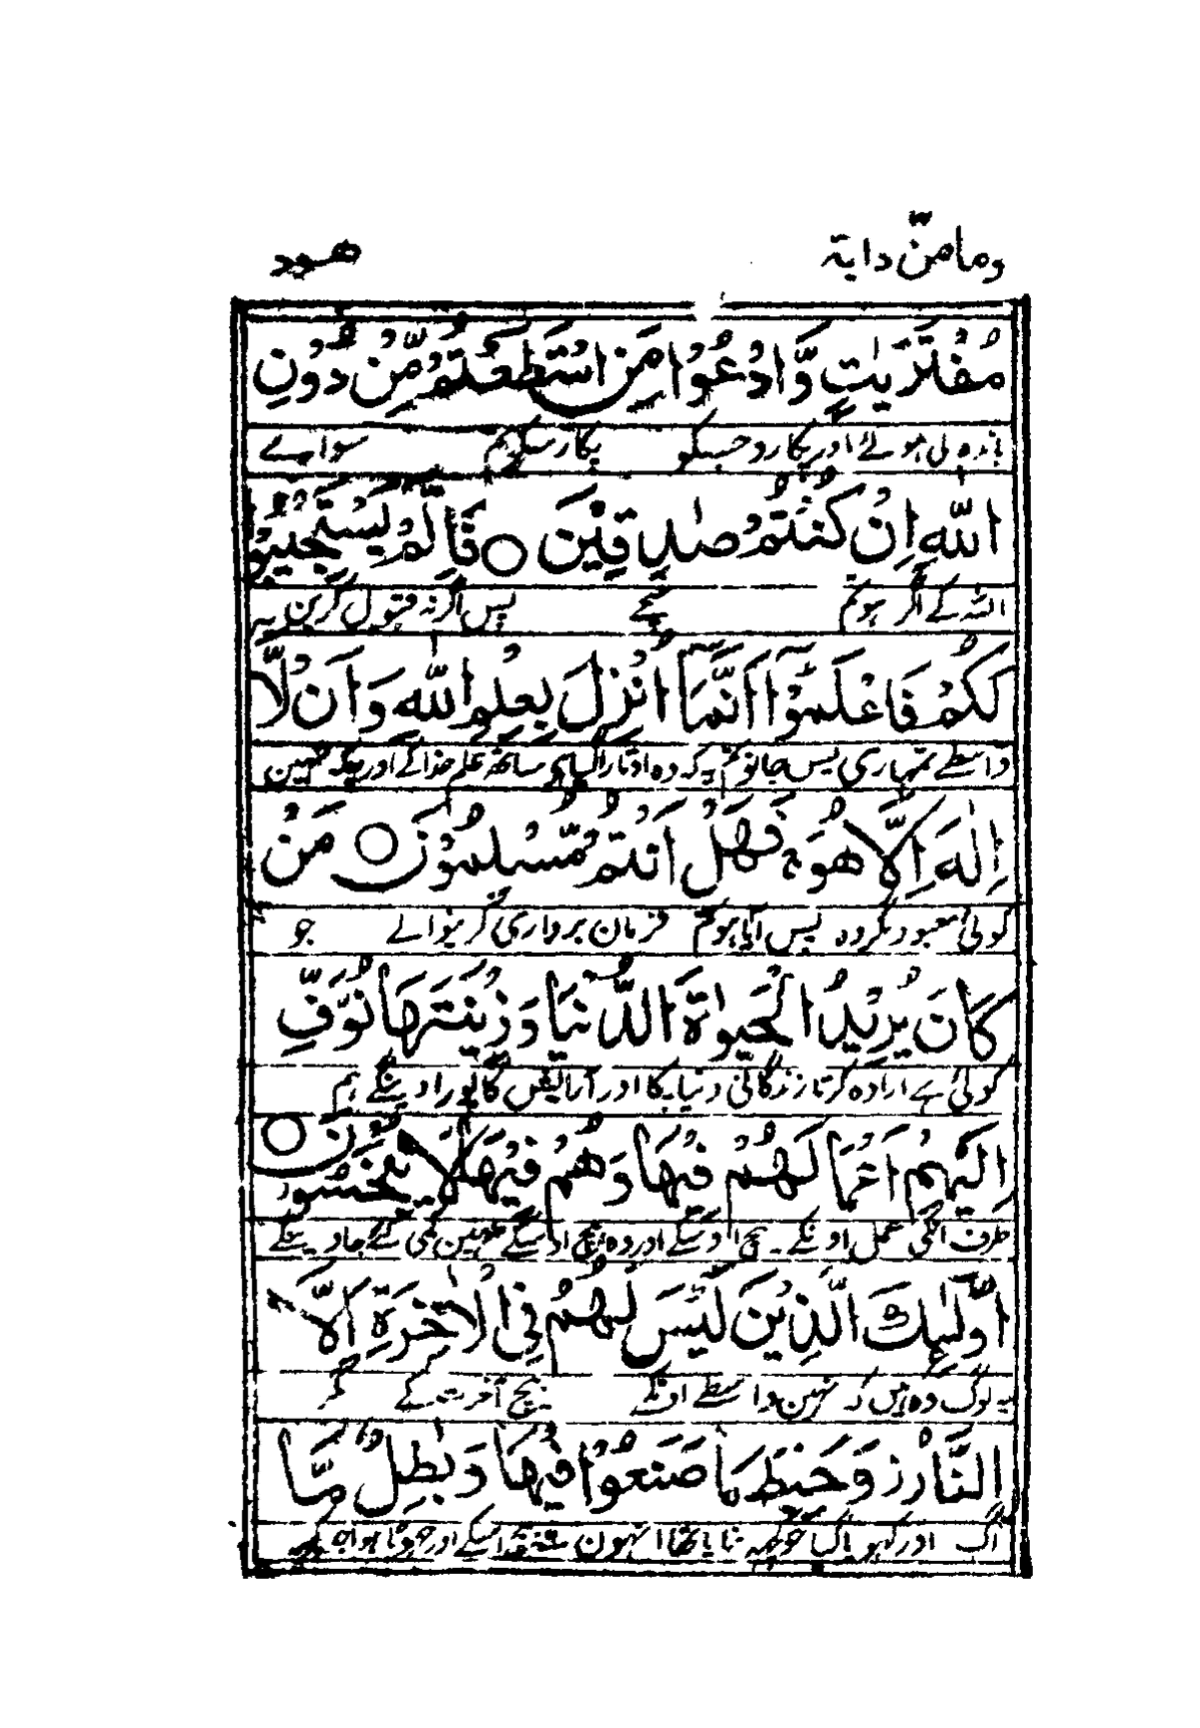 وما من دابة
ھود
مُفْتَرَيٰتٍ وَّادْعُوْا مَنِ اسْتَطَعْتُمْ مِّنْ دُوْنِ
باندہ لی ہوئے اور پکارو جسکو پکار سکو تم سوائے
اللّٰهِ اِنْ كُنْتُمْ صٰدِقِيْنَ ○ فَاِلَّمْ يَسْتَجِيْبُوْا
اللہ کے اگر ہو تم سچے پس اگر نہ قبول کرین یہ
لَكُمْ فَاعْلَمُوْٓا اَنَّمَآ اُنْزِلَ بِعِلْمِ اللّٰهِ وَاَنْ لَّا
واسطے تمہاری پس جانو تم یہ کہ وہ اوتارا گیا ہی ساتھ علم خدا کے اور یہ کہ نہین
اِلٰهَ اِلَّا هُوَ ۚ فَهَلْ اَنْتُمْ مُّسْلِمُوْنَ ○ مَنْ
کوئی معبود مگر وہ پس آیا ہو تم فرمان برداری کرنیوالے جو
كَانَ يُرِيْدُ الْحَيٰوةَ الدُّنْيَا وَزِيْنَتَهَا نُوَفِّ
کوئی ہے ارادہ کرتا زندگانی دنیا کا اور آرایش کا پورا دینگے ہم
اِلَيْهِمْ اَعْمَالَهُمْ فِيْهَا وَهُمْ فِيْهَا لَا يُبْخَسُوْنَ ○
طرف انکی عمل اونکے بیچ اوسکے اور وہ بیچ اوسکے نہین کمی کئے جاوینگے
اُولٰٓئِكَ الَّذِيْنَ لَيْسَ لَهُمْ فِي الْاٰخِرَةِ اِلَّا
یہ لوگ وہ ہیں کہ نہین واسطے اونکے بیچ آخرت کے مگر
النَّارُ ز وَحَبِطَ مَا صَنَعُوْا فِيْهَا وَبٰطِلٌ مَّا
آگ اور کھویا گیا جو کچھ بنایا تھا انہون اسکے اور جھوٹا ہوا